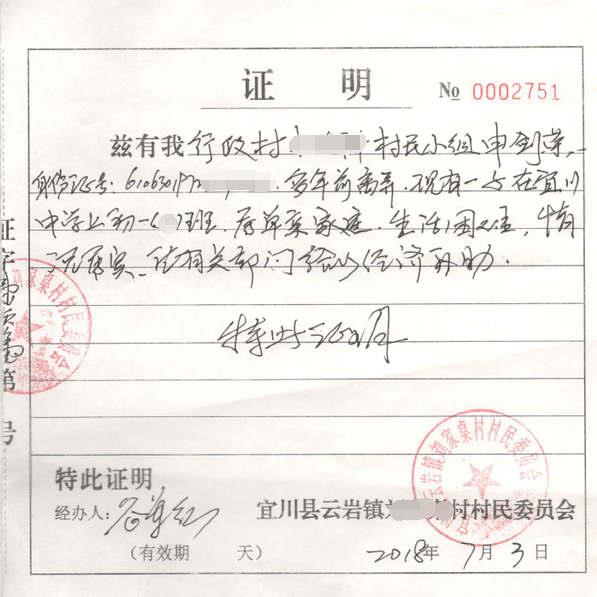 证 明
№ 0002751
兹有我行政村 村民小组申
身份证号: 多年前离异.现有一子在宜川
中学上初一 班.属单亲家庭.生活困难,情
况属实,请有关部门给以经济补助.
特此证明
特此证明。
经办人:
宜川县云岩镇 村村民委员会
(有效期 天)
2018年 7月 3日
证字 第 号